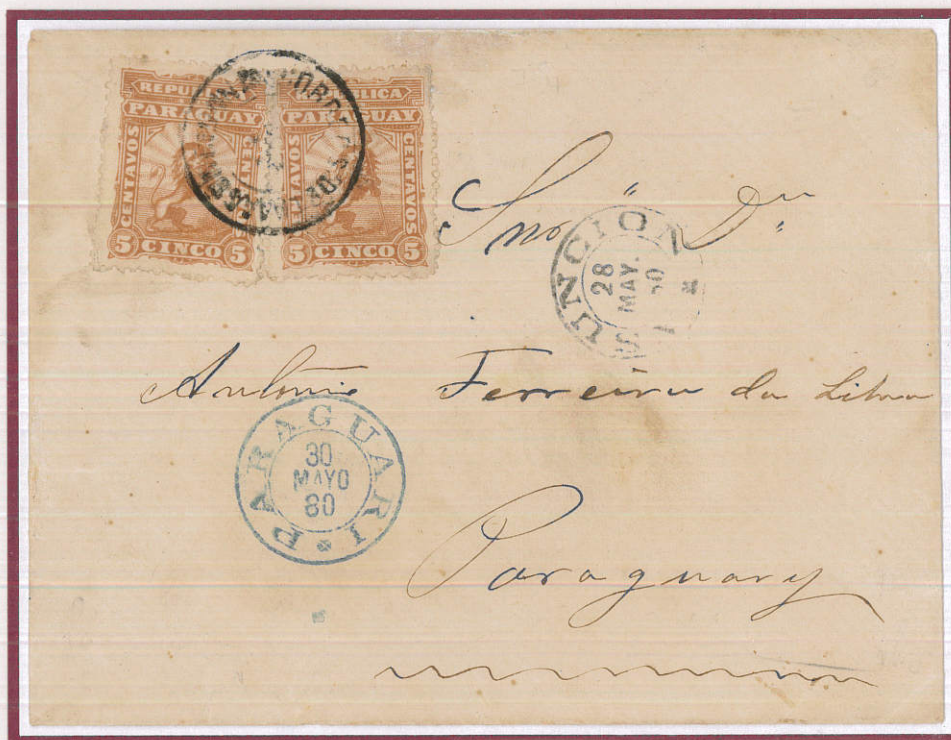 REPUBLICA
PARAGUAY
CENTAVOS
5 CINCO 5
REPUBLICA
PARAGUAY
CENTAVOS
5 CINCO 5
Snoʳ Dⁿ
UNCION
28
MAY.
80
Antonio Ferreira da
PARAGUARI
30
MAYO
80
Paraguary